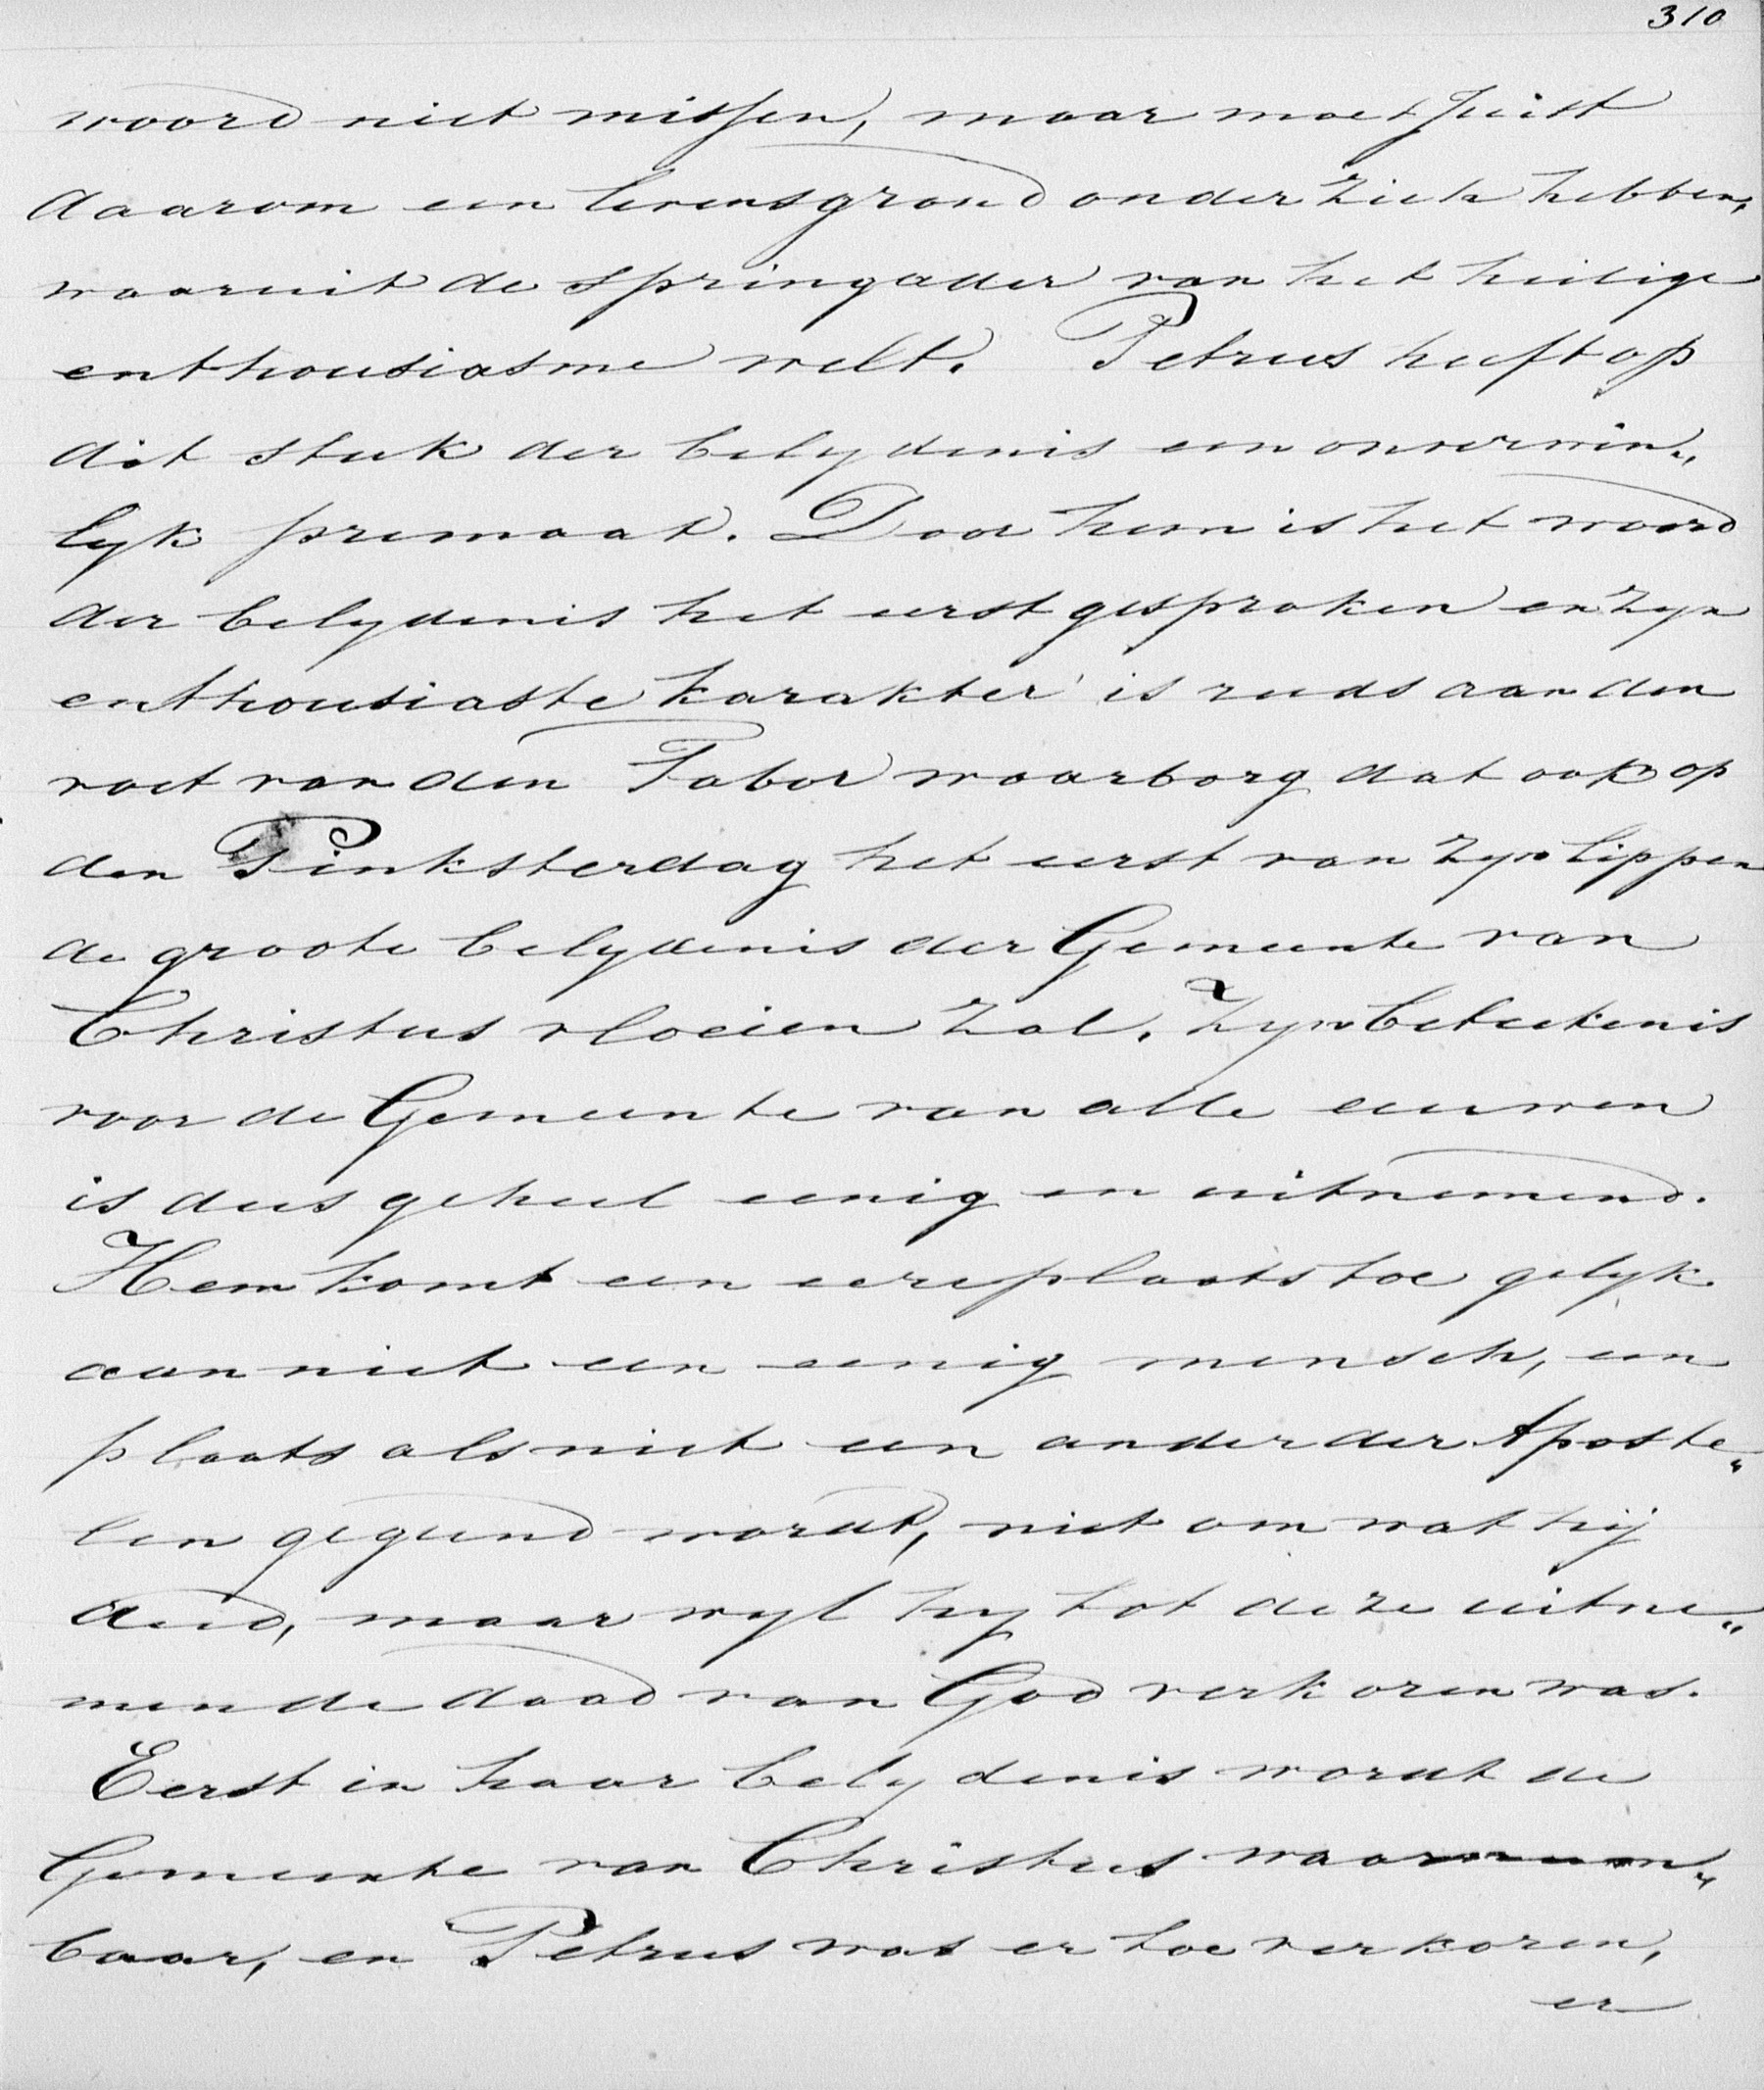 310
woord niet missen, maar moet juist
daarom een levensgrond onder zich hebben,
waaruit de springader van het heilige
enthousiasme welt. Petrus heeft op
dit stuk der belydenis een onverwin„
lyk primaat. Door hem is het woord
der belydenis het eerst gesproken en zyn
enthousiaste karakter is reeds aan den
voet van den Tabor waarborg dat ook op
den Pinksterdag het eerst van zyn lippen
de groote belydenis der Gemeente van
Christus vloeien zal. Zyn beteekenis
voor de Gemeente van alle eeuwen
is dus geheel eenig en uitnemend.
Hem komt een eereplaats toe gelyk
aan niet een eenig mensch, een
plaats als niet een ander der Aposte„
len gegund wordt, niet om wat hij
deed, maar wyl hy tot deze uitne„
mende daad van God verkoren was.
Eerst in haar belydenis wordt de
Gemeente van Christus waarneem„
baar, en Petrus was er toe verkoren,
er